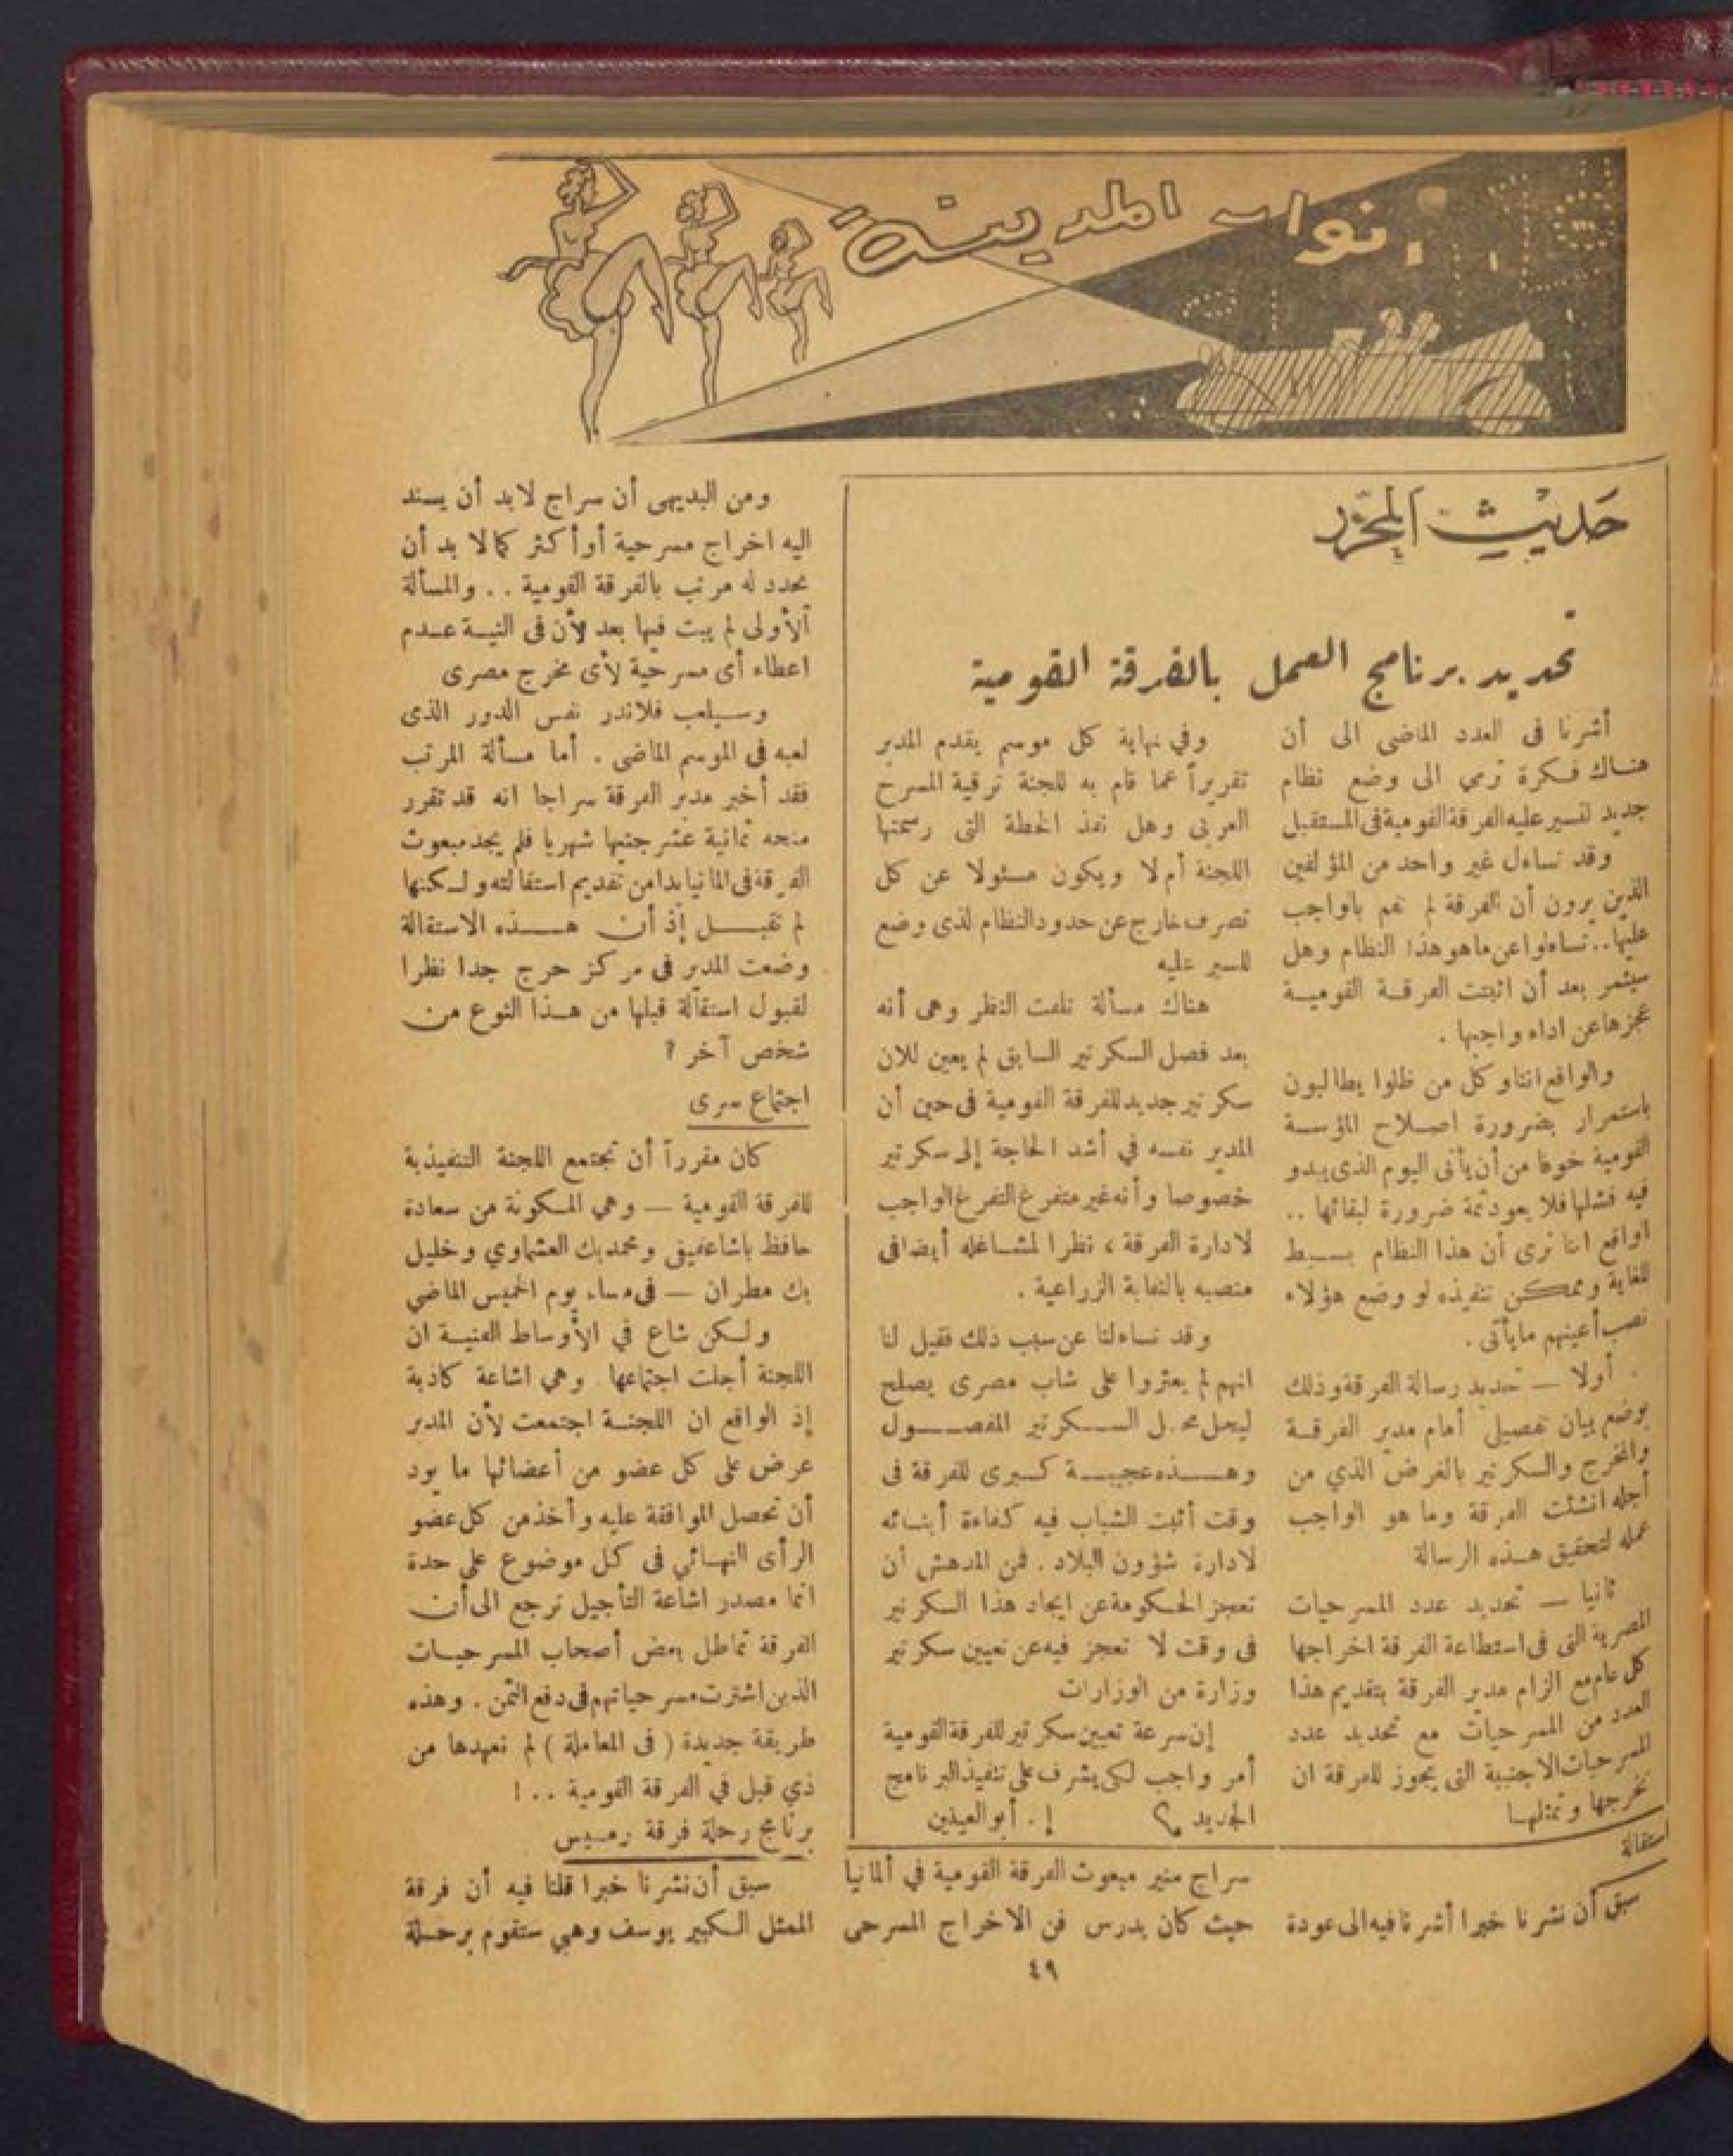 أنوار المدينة
حديث المحرر
تحديد برنامج العمل بالفرقة القومية
أشرنا فى العدد الماضى الى أن
هناك فكرة ترمي الى وضع نظام
جديد لتسير عليه الفرقة القومية فى المستقبل
وقد تساءل غير واحد من المؤلفين
الذين يرون أن الفرقة لم تقم بالواجب
عليها .. تساءلوا عن ماهو هذا النظام وهل
سيثمر بعد أن اثبتت الفرقة القومية
عجزها عن اداء واجبها .
والواقع اننا وكل من ظلوا يطالبون
باستمرار بضرورة اصلاح المؤسسة
القومية خوفا من أن يأتى اليوم الذى يبدو
فيه فشلها فلا يعود ثمة ضرورة لبقائها ..
اواقع اننا نرى أن هذا النظام بسيط
للغاية وممكن تنفيذه لو وضع هؤلاء
نصب أعينهم مايأتى .
أولا — تحديد رسالة الفرقة وذلك
بوضع بيان تفصيلي أمام مدير الفرقة
والمخرج والسكرتير بالغرض الذي من
أجله انشئت الفرقة وما هو الواجب
عمله لتحقيق هذه الرسالة
ثانيا — تحديد عدد المسرحيات
المصرية التى فى استطاعة الفرقة اخراجها
كل عام مع الزام مدير الفرقة بتقديم هذا
العدد من المسرحيات مع تحديد عدد
المسرحيات الاجنبية التى يجوز للفرقة ان
تخرجها وتمثلها
وفي نهاية كل موسم يقدم المدير
تقريراً عما قام به للجنة ترقية المسرح
العربى وهل نفذ الخطة التى رسمتها
اللجنة أم لا ويكون مسئولا عن كل
تصرف خارج عن حدود النظام لذى وضع
للسير عليه
هناك مسألة تلفت النظر وهى أنه
بعد فصل السكرتير السابق لم يعين للان
سكرتير جديد للفرقة القومية فى حين أن
المدير نفسه في أشد الحاجة إلى سكرتير
خصوصا وأنه غير متفرغ التفرغ الواجب
لادارة الفرقة ، نظرا لمشاغله أيضا فى
منصبه بالنقابة الزراعية .
وقد تساءلنا عن سبب ذلك فقيل لنا
انهم لم يعثروا على شاب مصرى يصلح
ليحل محل السكرتير المفصول
وهذه عجيبة كبرى للفرقة فى
وقت أثبت الشباب فيه كفاءة أبنائه
لادارة شؤون البلاد . فمن المدهش أن
تعجز الحكومة عن ايجاد هذا السكرتير
فى وقت لا تعجز فيه عن تعيين سكرتير
وزارة من الوزارات
إن سرعة تعيين سكرتير للفرقة القومية
أمر واجب لكى يشرف على تنفيذ البرنامج
الجديد ؟ إ . أبو العينين
استقالة
سبق أن نشرنا خبرا أشرنا فيه الى عودة
سراج منير مبعوث الفرقة القومية في ألمانيا
حيث كان يدرس فن الاخراج المسرحى
ومن البديهى أن سراج لابد أن يسند
اليه اخراج مسرحية أو أكثر كما لا بد أن
يحدد له مرتب بالفرقة القومية .. والمسألة
الأولى لم يبت فيها بعد لأن فى النية عدم
اعطاء أى مسرحية لأى مخرج مصرى
وسيلعب فلاندر نفس الدور الذى
لعبه فى الموسم الماضى . أما مسألة المرتب
فقد أخبر مدير الفرقة سراجا انه قد تقرر
منحه ثمانية عشر جنيها شهريا فلم يجد مبعوث
الفرقة فى المانيا بدا من تقديم استقالته ولكنها
لم تقبل إذ أن هذه الاستقالة
وضعت المدير فى مركز حرج جدا نظرا
لقبول استقالة قبلها من هذا النوع من
شخص آخر ؟
اجتماع سرى
كان مقرراً أن تجتمع اللجنة التنفيذية
للفرقة القومية — وهي المكونة من سعادة
حافظ باشا عفيفى ومحمد بك العشماوي وخليل
بك مطران — فى مساء يوم الخميس الماضي
ولكن شاع في الأوساط الفنية ان
اللجنة أجلت اجتماعها وهي اشاعة كاذبة
إذ الواقع ان اللجنة اجتمعت لأن المدير
عرض على كل عضو من أعضائها ما يود
أن تحصل الموافقة عليه وأخذ من كل عضو
الرأى النهائي فى كل موضوع على حدة
انما مصدر اشاعة التأجيل ترجع الى أن
الفرقة تماطل بعض أصحاب المسرحيات
الذين اشترت مسرحياتهم فى دفع الثمن . وهذه
طريقة جديدة ( فى المعاملة ) لم نعهدها من
ذي قبل في الفرقة القومية .. !
برنامج رحلة فرقة رمسيس
سبق أن نشرنا خبرا قلنا فيه أن فرقة
الممثل الكبير يوسف وهبي ستقوم برحلة
٤٩